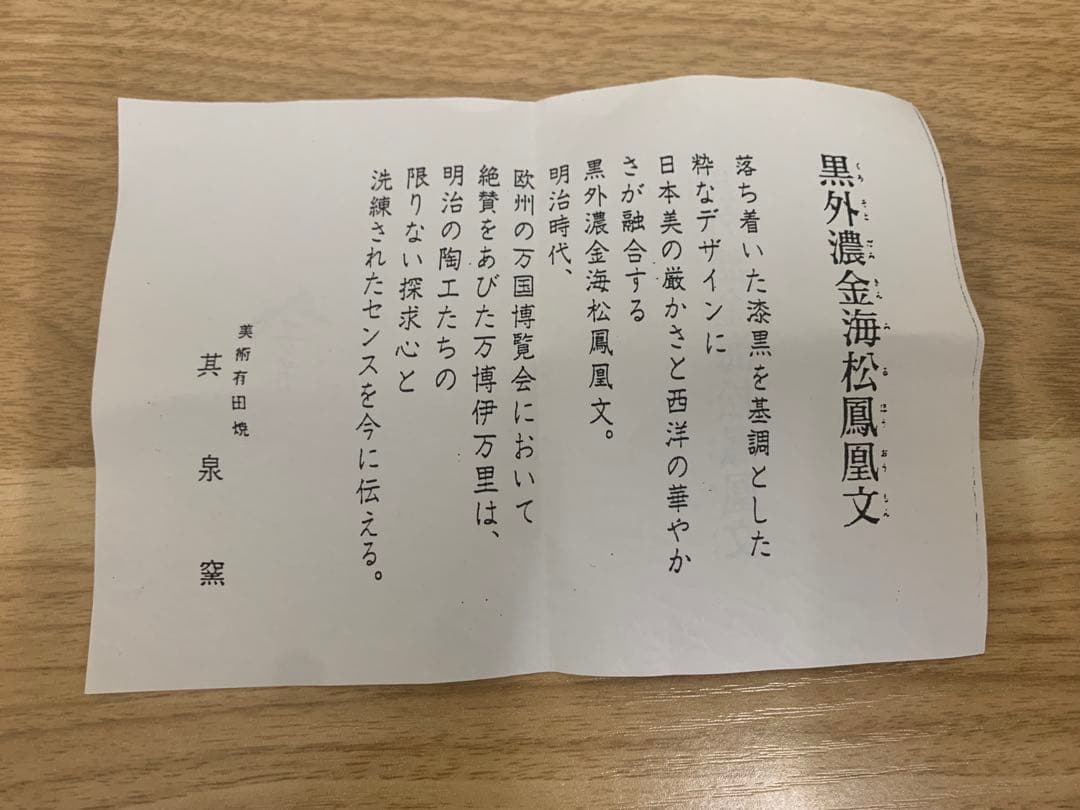 黒外濃金海松鳳凰文
くろそとごみきんみるほうおうもん
落ち着いた漆黒を基調とした
粋なデザインに
日本美の厳かさと西洋の華やか
さが融合する
黒外濃金海松鳳凰文。
明治時代、
欧州の万国博覧会において
絶賛をあびた万博伊万里は、
明治の陶工たちの
限りない探求心と
洗練されたセンスを今に伝える。
美術有田焼
其泉窯